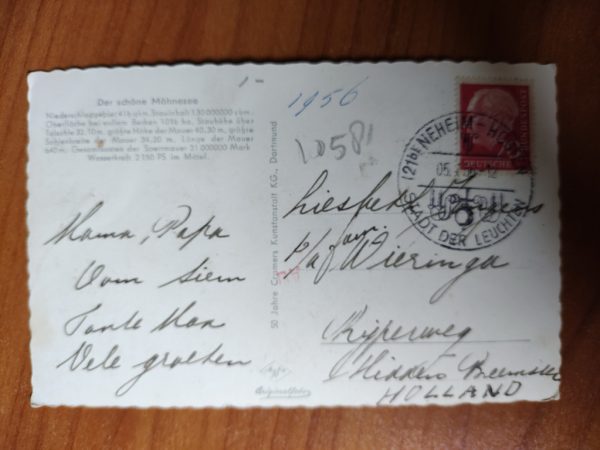 Der schöne Möhnesee
Niederschlagsgebiet 416 qkm. Stauinhalt 130 000 000 cbm.
Oberfläche bei vollem Becken 1016 ha. Stauhöhe über
Talsohle 32,10 m, größte Höhe der Mauer 40,30 m, größte
Sohlenbreite der Mauer 34,20 m. Länge der Mauer
640 m. Gesamtkosten der Sperrmauer 21 000 000 Mark
Wasserkraft 2 150 PS im Mittel.
1956
Mama, Papa
Oom Siem
Tante Max
Vele groeten
50 Jahre Cramers Kunstanstalt KG., Dortmund
Agfa
Originalfoto
DEUTSCHE
(21b) NEHEIM-
STADT DER LEUCHTEN
Fam.
p/a Wieringa
Rijperweg
Midden Beemster
HOLLAND